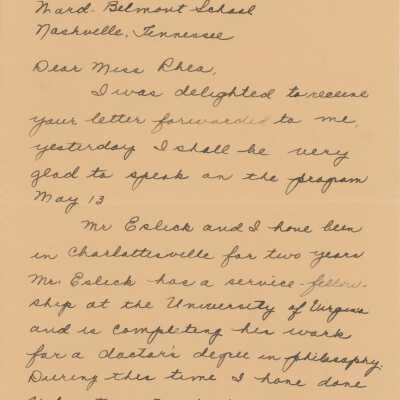 Ward-Belmont School
Nashville, Tennessee
Dear Miss Rhea,
I was delighted to receive
your letter forwarded to me,
yesterday. I shall be very
glad to speak on the program
May 13
Mr Eslick and I have been
in Charlottesville for two years
Mr. Eslick has a service-fellow-
ship at the University of Virginia
and is completing his work
for a doctor's degree in philosophy.
During this time I have done